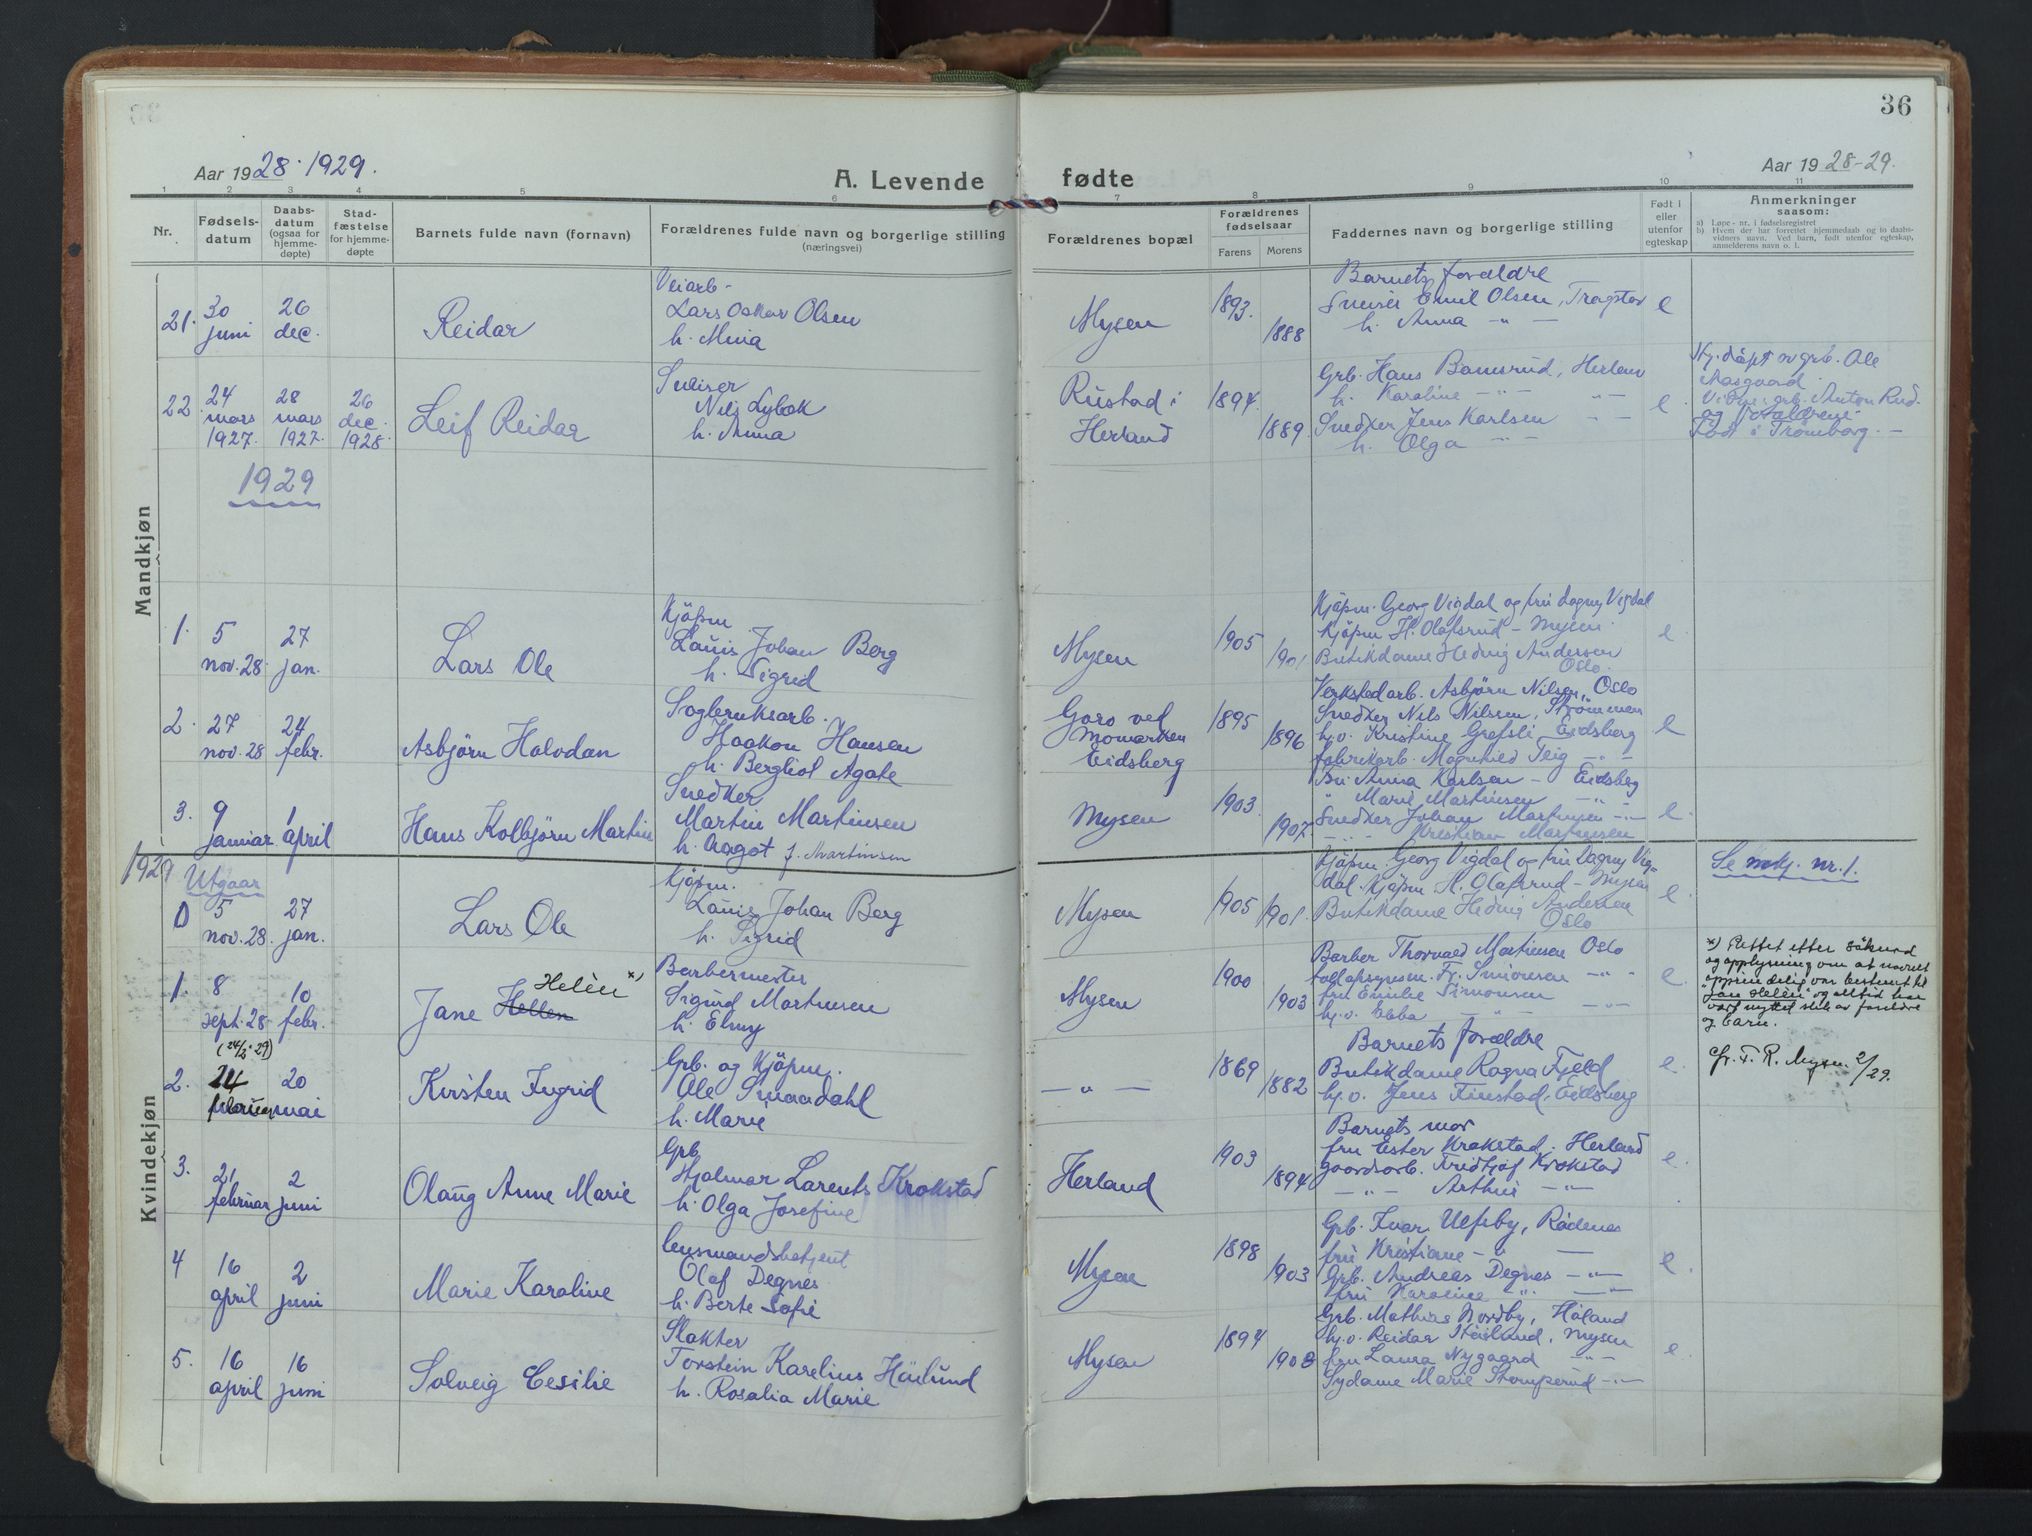 36
Aar 1928-1929.
A. Levende fødte
Aar 1928-29.
1 2 3 4 5 6 7 8 9 10 11
Nr.
Fødsels-datum
Daabs-datum (ogsaa for hjemme-døpte)
Stad-fæstelse for hjemme-døpte
Barnets fulde navn (fornavn)
Forældrenes fulde navn og borgerlige stilling (næringsvei)
Forældrenes bopæl
Forældrenes fødselsaar
Farens Morens
Faddernes navn og borgerlige stilling
Født i eller utenfor egteskap
Anmerkninger saasom:
a) Løpe-nr. i fødselsregistret
b) Hvem der har forrettet hjemmedaab og to daabs-vidners navn. Ved barn, født utenfor egteskap, anmelderens navn o. l.
Mandkjøn
21. 30 juni
26 dec.
Reidar
Veiarb-
Lars Oskar Olsen
h. Mina
Mysen
1893.
1888
Barnets forældre
Emil Olsen, Trøgstad
h. Anna - " -
e
22 24 mars 1927.
28 mars 1927.
26 dec. 1928
Leif Reidar
Nils Lybæk
h. Anna
Rustad i
Herland
1894.
1889.
Grb. Hans Bamsrud, Herland
h. Karoline - " -
Snedker Jens Karlsen
h. Olga - " -
e.
Hj. døpt av grb. Ole
Aasgaard.
Vidner: grb. Anton Rud
og forældrene.
Født i Trømborg. -
1929
1. 5 nov. 28
27 jan.
Lars Ole
Kjøpm
Lauis Johan Berg
h. Sigrid
Mysen
1905
1901
Kjøpm. Georg Vigdal og fru Dagny Vigdal
Kjøpm H. Olafsrud - Mysen.
Butikdame Hedvig Andersen
Oslo.
e.
2. 27 nov. 28
24 febr.
Asbjørn Halvdan
Sagbruksarb.
Haakon Hansen
h. Bergliot Agate
Goro ved
Momarken
Eidsberg
1895
1896
Verkstedarb. Asbjørn Nilsen, Oslo
Snedker Nils Nilssen, Strømmen
h.v. Kristine Grefsli, Eidsberg
fabrikarb. Magnhild Teig - " -
e
3. 9 januar
1 april
Hans Kolbjørn Martin
Snedker
Martin Martinsen
h. Aagot f. Martinsen
Mysen
1903
1907.
Fru Anna Karlsen - Eidsberg
" Marie Martinsen - " -
Snedker Johan Martinsen - " -
- " - Kristian Martinsen
e.
Kvindekjøn
1929
Utgaar
0 5 nov. 28.
27 jan.
Lars Ole
Kjøpm.
Lauis Johan Berg
h. Sigrid
Mysen
1905
1901.
Kjøpm. Georg Vigdal og fru Dagny Vig=
dal. Kjøpm H. Olafsrud - Mysen
Butikdame Hedvig Andersen
Oslo
e.
Se mkj. nr. 1.
1. 8 sept. 28
10 febr.
Helèn *)
Jane Hellen
Barbermester
Sigurd Martinsen
h. Elmy
Mysen
1900
1903
Barber Thorvald Martinsen Oslo
Fr. Simonsen - " -
fru Emilie Simonsen
h.v. Ebba - " -
e.
*) Rettet efter søknad
og opplysning om at navnet
oprindelig var bestemt til
"Jan Helèn" og alltid har
vært nyttet slik av foreldre
og barn.
2. (24/2-29)
24 februar
20 mai
Kirsten Ingrid
Grb. og Kjøpm.
Ole Smaadahl
h. Marie
- " -
1869
1882
Barnets forældre
Butikdame Ragna Fjeld
h.v. Jens Finstad, Eidsberg
e.
cfr. F. R. Mysen 2/29.
3. 21 februar
2 juni
Olaug Anne Marie
Grb
Hjalmar Larents Krokstad
h. Olga Josefine
Herland
1903
1894
Barnets mor
fru Ester Krokstad, Herland
gaardsarb. Fridtjof Krokstad
- " - Arthur - " -
e.
4 16 april
2 juni
Marie Karoline
lensmandsbetjent
Olaf Degnes
h. Berte Sofie
Mysen
1898
1903
Grb. Ivar Ulfsby, Rødenes
fru Kristiane - " -
Grb. Andreas Degnes - " -
fru Karoline - " -
e.
5. 16 april
16 juni
Solveig Cesilie
Slakter
Torstein Karelius Høilund
h. Rosalia Marie
Mysen
1894
1908
Grb. Mathias Nordby, Høland
h.v. Reidar Høilund, Mysen
fru Laura Nygaard - " -
Sydame Marie Stomperud - " -
e.